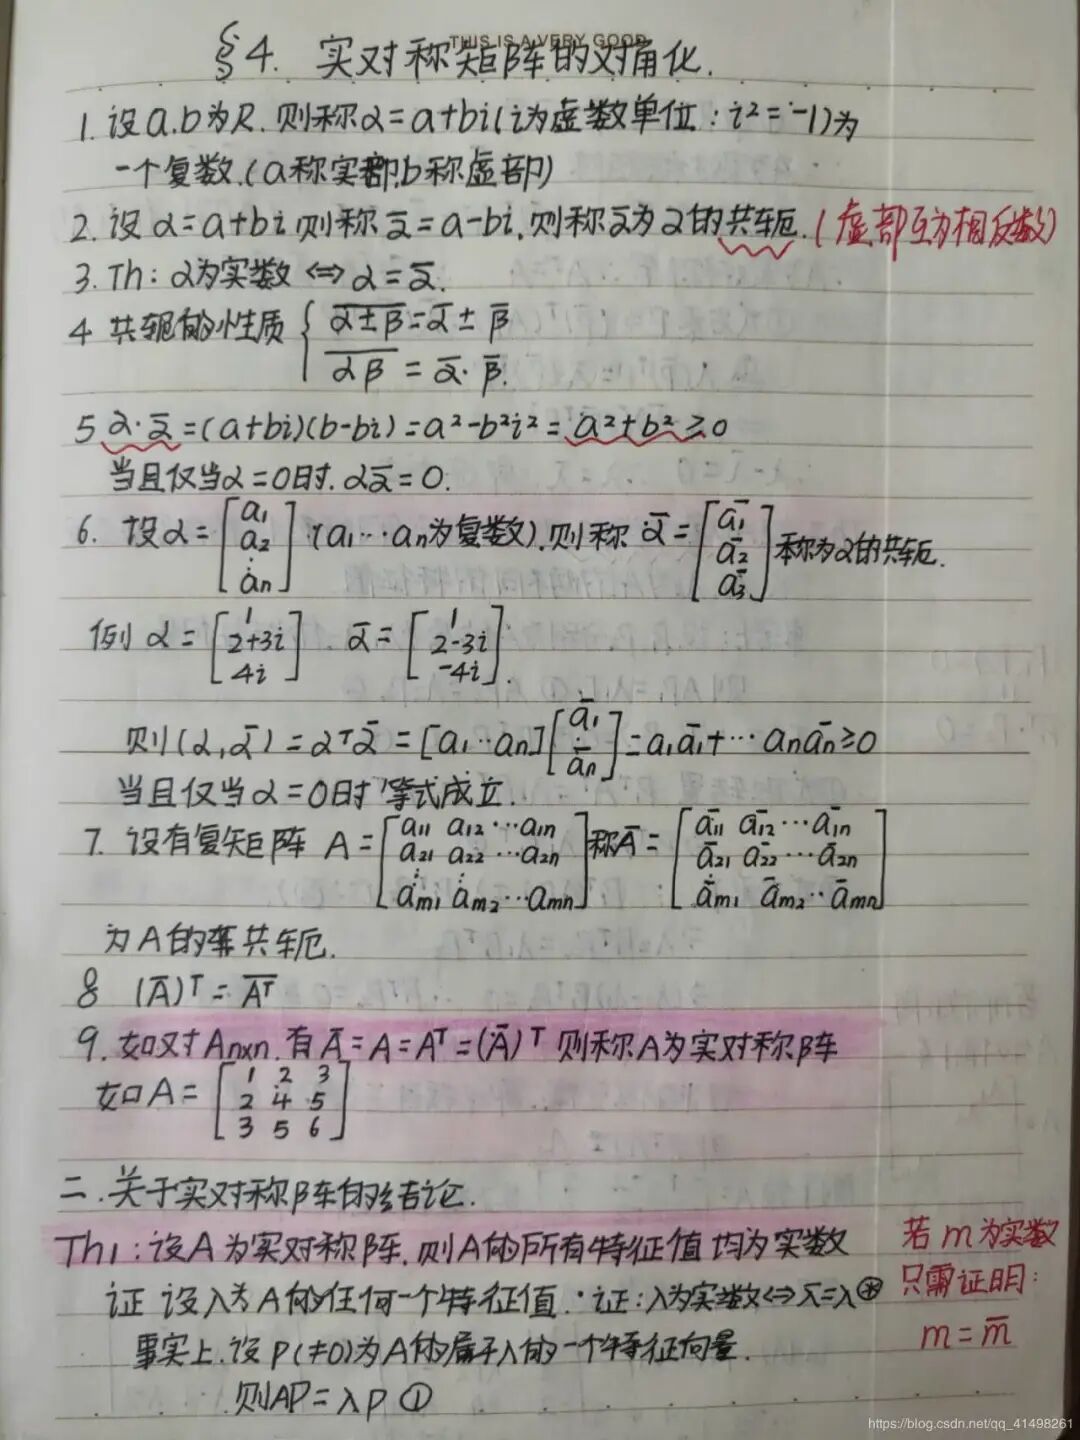 THIS IS A VERY GOOD
§4. 实对称矩阵的对角化.
1. 设a.b为R. 则称α=a+bi(i为虚数单位:i²=-1)为
一个复数.(a称实部,b称虚部)
2. 设α=a+bi,则称ᾱ=a-bi,则称ᾱ为α的共轭.(虚部互为相反数)
3. Th: α为实数⇔α=ᾱ.
4 共轭的性质 { \overline{α±β}=ᾱ±β̄
\overline{αβ}=ᾱ·β̄.
5 α·ᾱ=(a+bi)(b-bi)=a²-b²i²=a²+b²≥0
当且仅当α=0时.αᾱ=0.
6. 设α=[a₁ a₂ ⋮ aₙ] (a₁…aₙ为复数).则称 ᾱ=[ā₁ ā₂ ā₃] 称为α的共轭.
例 α=[1 2+3i 4i] ᾱ=[1 2-3i -4i].
则(α,ᾱ)=αᵀᾱ=[a₁…aₙ][ā₁ ⋮ āₙ]=a₁ā₁+…aₙāₙ≥0
当且仅当α=0时 等式成立.
7. 设有复矩阵 A=[a₁₁ a₁₂…a₁ₙ a₂₁ a₂₂…a₂ₙ ⋮ ⋮ aₘ₁ aₘ₂…aₘₙ] 称Ā=[ā₁₁ ā₁₂…ā₁ₙ ā₂₁ ā₂₂…ā₂ₙ ⋮ āₘ₁ āₘ₂…āₘₙ]
为A的共轭.
8 (Ā)ᵀ=\overline{Aᵀ}
9. 如对Aₙₓₙ.有Ā=A=Aᵀ=(Ā)ᵀ 则称A为实对称阵
如A=[1 2 3 2 4 5 3 5 6]
二.关于实对称阵的结论.
Th₁:设A为实对称阵.则A的所有特征值均为实数
证 设λ为A的任何一个特征值.·证:λ为实数⇔λ̄=λ⊛
事实上.设p(≠0)为A的属于λ的一个特征向量.
则AP=λp ①
若m为实数
只需证明:
m=m̄
https://blog.csdn.net/qq_41498261